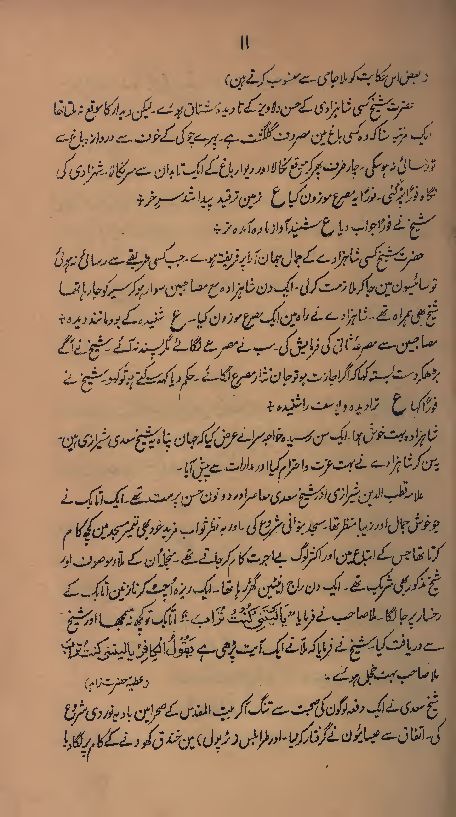 ۱۱
(بعض اس حکایت کو ملا جامی سے منسوب کرتے ہین)
حضرت شیخ کسی شاہزادی کے حسن دلاویز کے نادیدہ مشتاق ہوے۔ لیکن دیدار کا موقع نہ ملتا تھا
ایک مرتبہ سنا کہ وہ کسی باغ مین مصروف گلگشت ہے۔ پہرے چوکی کے خوف سے دروازہ باغ سے
تو رسائی نہوسکی۔ چار طرف پھر کر موقع نکالا اور دیوار باغ کے ایک تابدان سے سر نکالا۔ شہزادی کی
نگاہ فوراً پڑ گئی۔ فوراً یہ مصرع موزون کیا ع زمین ترقید پیدا شد سر خر ؞
شیخ نے فوراً جواب دیا ع شنید آواز مادہ آمدہ نر ؞
حضرت شیخ کسی شاہزادے کے جمال جہان آرا پر فریفتہ ہوے۔ جب کسی طریقے سے رسائی نہ ہوئی
تو سائسیون مین جا کر ملازمت کرلی۔ ایک دن شاہزادہ مع مصاحبین سوار ہو کر سیر کو جا رہا تھا
شیخ بھی ہمراہ تھے۔ شاہزادے نے راہ مین ایک مصرع موزون کیا۔ ع شنیدہ کے بود مانند دیدہ ؞
مصاحبین سے مصرعہ ثانی کی فرمایش کی۔ سب نے مصرعے لگائے مگر پسند نہ آئے۔ شیخ نے آگے
بڑھکر دست بستہ کہا کہ اگر اجازت ہو تو جان نثار مصرع لگائے۔ حکم دیا کہ کہہ سکتے ہو تو کہو۔ شیخ نے
فوراً کہا ع ترا دیدہ و یوسف را شنیدہ ؞
شاہزادہ بہت خوش ہوا۔ ایک سن رسیدہ خواجہ سرا نے عرض کیا کہ جہان پناہ یہ شیخ سعدی شیرازی ہین۔
یہ سن کر شاہزادے نے بہت عزت و احترام کیا اور مدارات سے پیش آیا۔
ملا قطب الدین شیرازی اور شیخ سعدی معاصر اور دونون حسن پرست تھے۔ ایک اتابک نے
جو خوش جمال اور زیبا منظر تھا۔ مسجد بنوانی شروع کی۔ اور بہ نظر ثواب خود بھی تعمیر مسجد مین کچھ کام
کرتا تھا جس کے اتباع مین اور اکثر لوگ بے اجرت کام کر جاتے تھے۔ منجملہ ان کے ملاے موصوف اور
شیخ مذکور بھی شریک تھے۔ ایک دن راج اینٹین گھڑ رہا تھا۔ ایک ریزہ اُچٹ کر نازنین اتابک کے
رخسار پر جا لگا۔ ملا صاحب نے فرمایا "یٰلَیْتَنِیْ کُنْتُ تُرَاب"۔ اتابک تو کچھ نہ سمجھا اور شیخ
سے دریافت کیا۔ شیخ نے فرمایا کہ ملا نے ایک آیت پڑھی ہے یَقُوْلُ الْکَافِرُ یٰلَیْتَنِیْ کُنْتُ تُرَاباً
ملا صاحب بہت خجل ہوئے۔
شیخ سعدی نے ایک دفعہ لوگون کی صحبت سے تنگ آ کر بیت المقدس کے صحرا مین بادیہ نوردی شروع
کی۔ اتفاق سے عیسائیون نے گرفتار کر لیا۔ اور طرابلس (ٹریپولی) مین خندق کھودنے کے کام پر لگا دیا